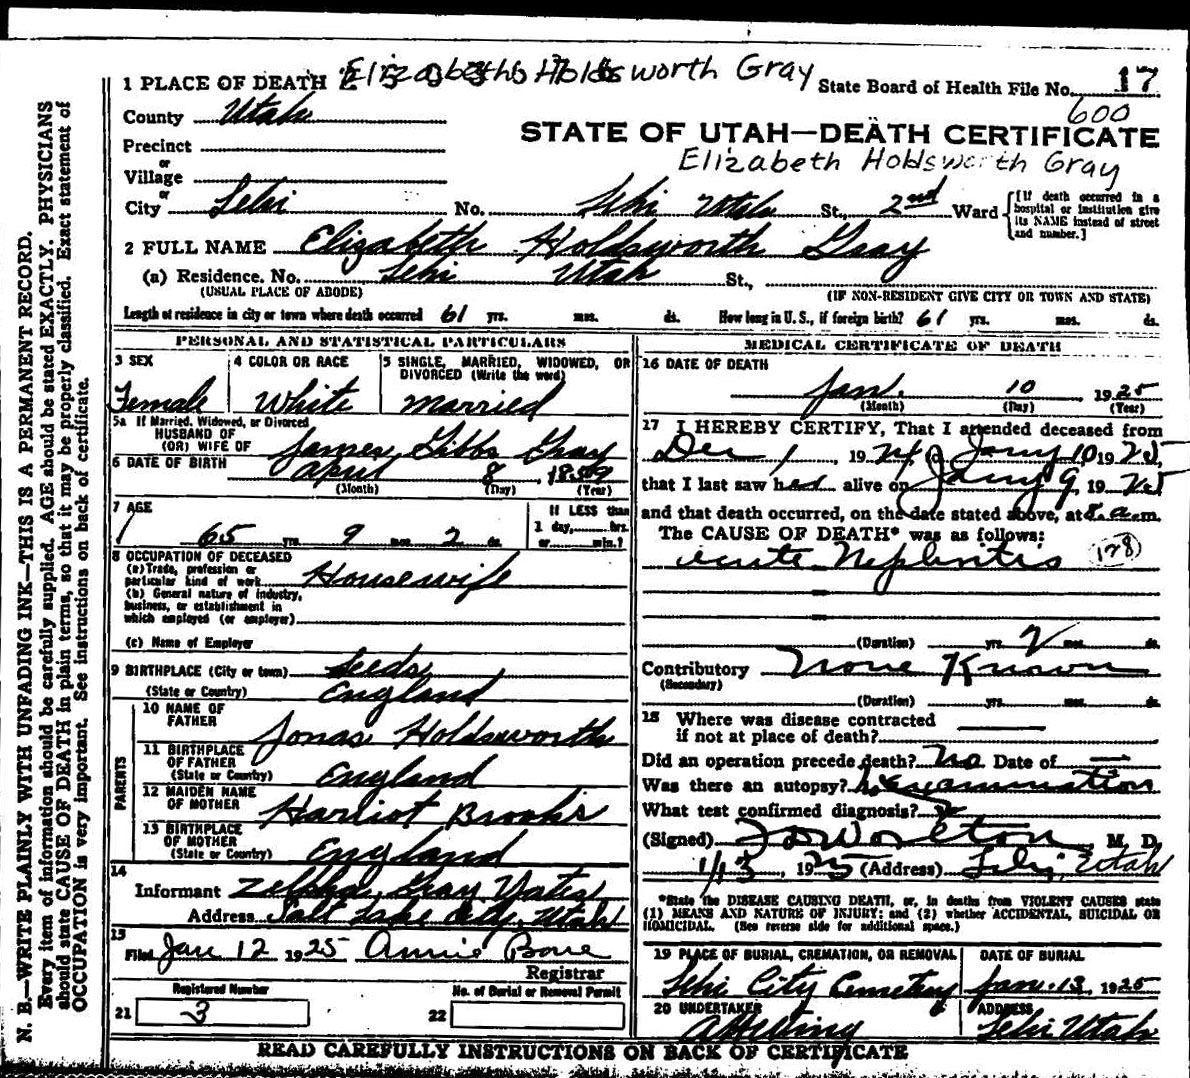 1 PLACE OF DEATH Elizabeth Holdsworth Gray State Board of Health File No. 17
600
County Utah
STATE OF UTAH—DEATH CERTIFICATE
Precinct
Elizabeth Holdsworth Gray
or
Village
or
City Lehi No. Lehi Utah St., 2nd Ward
[If death occurred in a hospital or institution give its NAME instead of street and number.]
2 FULL NAME Elizabeth Holdsworth Gray
(a) Residence. No. Lehi Utah St.,
(USUAL PLACE OF ABODE) (IF NON-RESIDENT GIVE CITY OR TOWN AND STATE)
Length of residence in city or town where death occurred 61 yrs. mos. ds. How long in U. S., if foreign birth? 61 yrs. mos. ds.
PERSONAL AND STATISTICAL PARTICULARS
3 SEX 4 COLOR OR RACE 5 SINGLE, MARRIED, WIDOWED, OR
DIVORCED (Write the word)
Female White Married
5a If Married, Widowed, or Divorced
HUSBAND OF
(OR) WIFE OF James Gibbs Gray
6 DATE OF BIRTH April 8, 1859
(Month) (Day) (Year)
7 AGE If LESS than
1 day, hrs.
65 yrs. 9 mos. 2 ds. or min.?
8 OCCUPATION OF DECEASED
(a) Trade, profession or
particular kind of work Housewife
(b) General nature of industry,
business, or establishment in
which employed (or employer)
(c) Name of Employer
9 BIRTHPLACE (City or town) Leeds
(State or Country) England
PARENTS
10 NAME OF
FATHER Jonas Holdsworth
11 BIRTHPLACE
OF FATHER
(State or Country) England
12 MAIDEN NAME
OF MOTHER Harriot Brooks
13 BIRTHPLACE
OF MOTHER
(State or Country) England
14
Informant Zelpha Gray Yates
Address Salt Lake City, Utah
15
Filed Jan 12 1925 Annie Bone
Registrar
Registered Number No. of Burial or Removal Permit
21 3 22
MEDICAL CERTIFICATE OF DEATH
16 DATE OF DEATH
Jan. 10 1925
(Month) (Day) (Year)
17 I HEREBY CERTIFY, That I attended deceased from
Dec 1, 1924, to Jany 10 1925,
that I last saw her alive on Jany 9, 1925
and that death occurred, on the date stated above, at 8 a. m.
The CAUSE OF DEATH* was as follows:
acute Nephritis (128)
(Duration) yrs. 2 mos. ds.
Contributory None Known
(Secondary)
(Duration) yrs. mos. ds.
18 Where was disease contracted
if not at place of death?
Did an operation precede death? no Date of
Was there an autopsy? no examination
What test confirmed diagnosis?
(Signed) Worlton, M. D.
1/13, 1925 (Address) Lehi, Utah
*State the DISEASE CAUSING DEATH, or, in deaths from VIOLENT CAUSES state
(1) MEANS AND NATURE OF INJURY; and (2) whether ACCIDENTAL, SUICIDAL OR
HOMICIDAL. (See reverse side for additional space.)
19 PLACE OF BURIAL, CREMATION, OR REMOVAL DATE OF BURIAL
Lehi City Cemetery Jan. 13, 1925
20 UNDERTAKER ADDRESS
Lehi Utah
READ CAREFULLY INSTRUCTIONS ON BACK OF CERTIFICATE
N. B.—WRITE PLAINLY WITH UNFADING INK—THIS IS A PERMANENT RECORD.
Every item of information should be carefully supplied. AGE should be stated EXACTLY. PHYSICIANS
should state CAUSE OF DEATH in plain terms, so that it may be properly classified. Exact statement of
OCCUPATION is very important. See instructions on back of certificate.